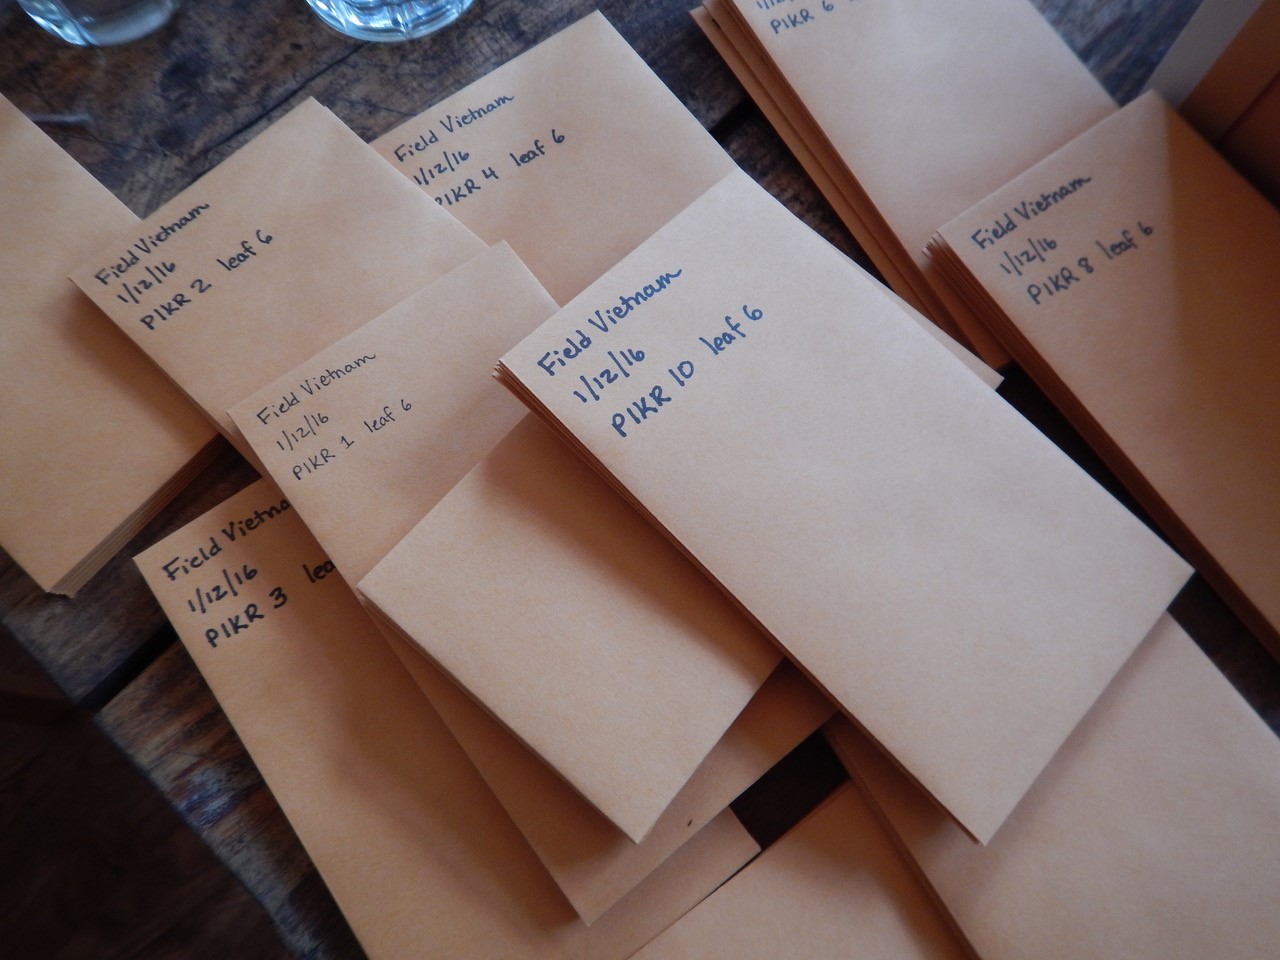 PIKR 6
Field Vietnam
1/12/16
PIKR 4 leaf 6
Field Vietnam
1/12/16
PIKR 8 leaf 6
Field Vietnam
1/12/16
PIKR 2 leaf 6
Field Vietnam
1/12/16
PIKR 10 leaf 6
Field Vietnam
1/12/16
PIKR 1 leaf 6
Field Vietna
1/12/16
PIKR 3 lea